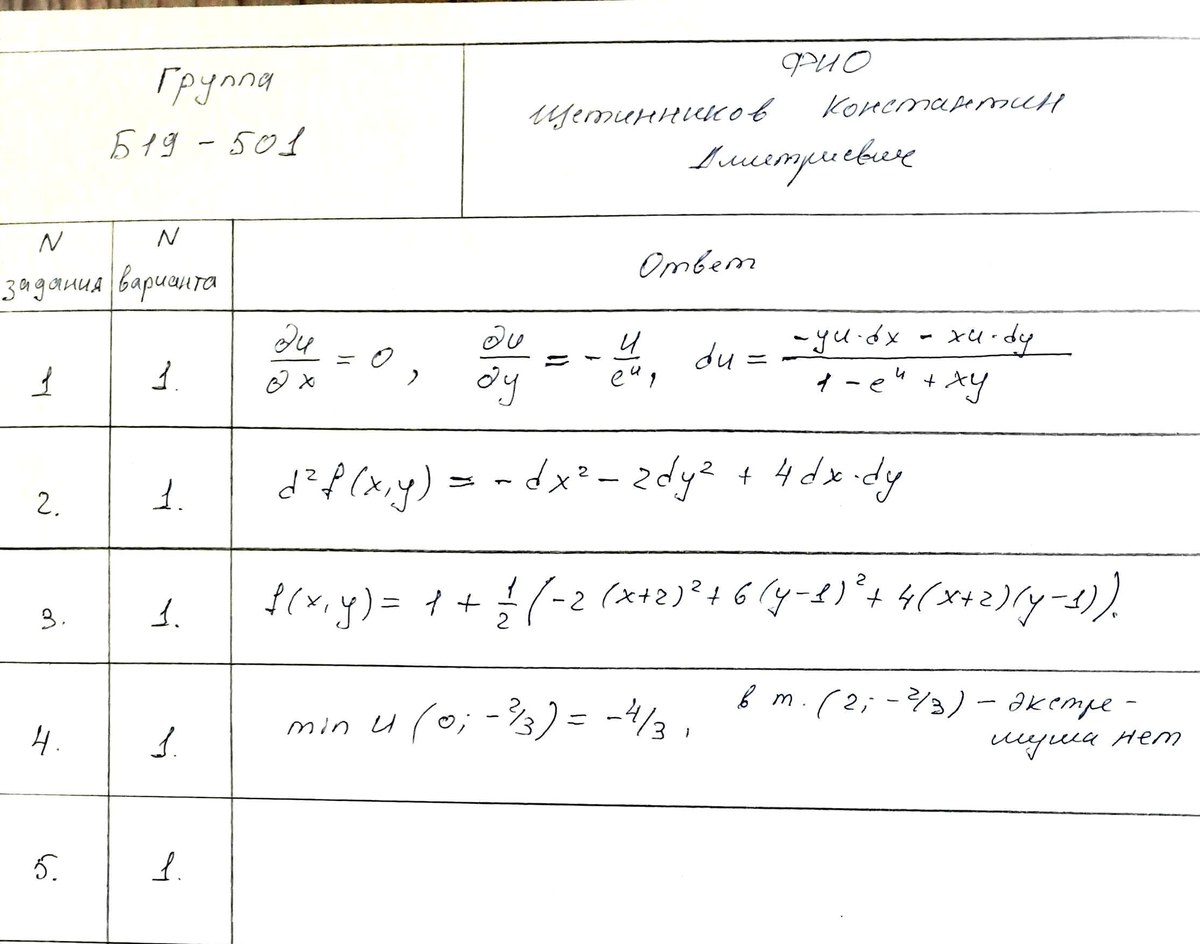 Группа
Б19 - 501
ФИО
Щетинников Константин
Дмитриевич
N задания
N варианта
Ответ
1
1.
∂u/∂x = 0, ∂u/∂y = - u/eᵘ, du = (-yu·dx - xu·dy)/(1 - eᵘ + xy)
2.
1.
d²f(x,y) = - dx² - 2dy² + 4dx·dy
3.
1.
f(x,y) = 1 + 1/2 (-2 (x+2)² + 6(y-1)² + 4(x+2)(y-1)).
4.
1.
min u (0; -2/3) = -4/3, в т. (2; -2/3) - экстре-
мума нет
5.
1.